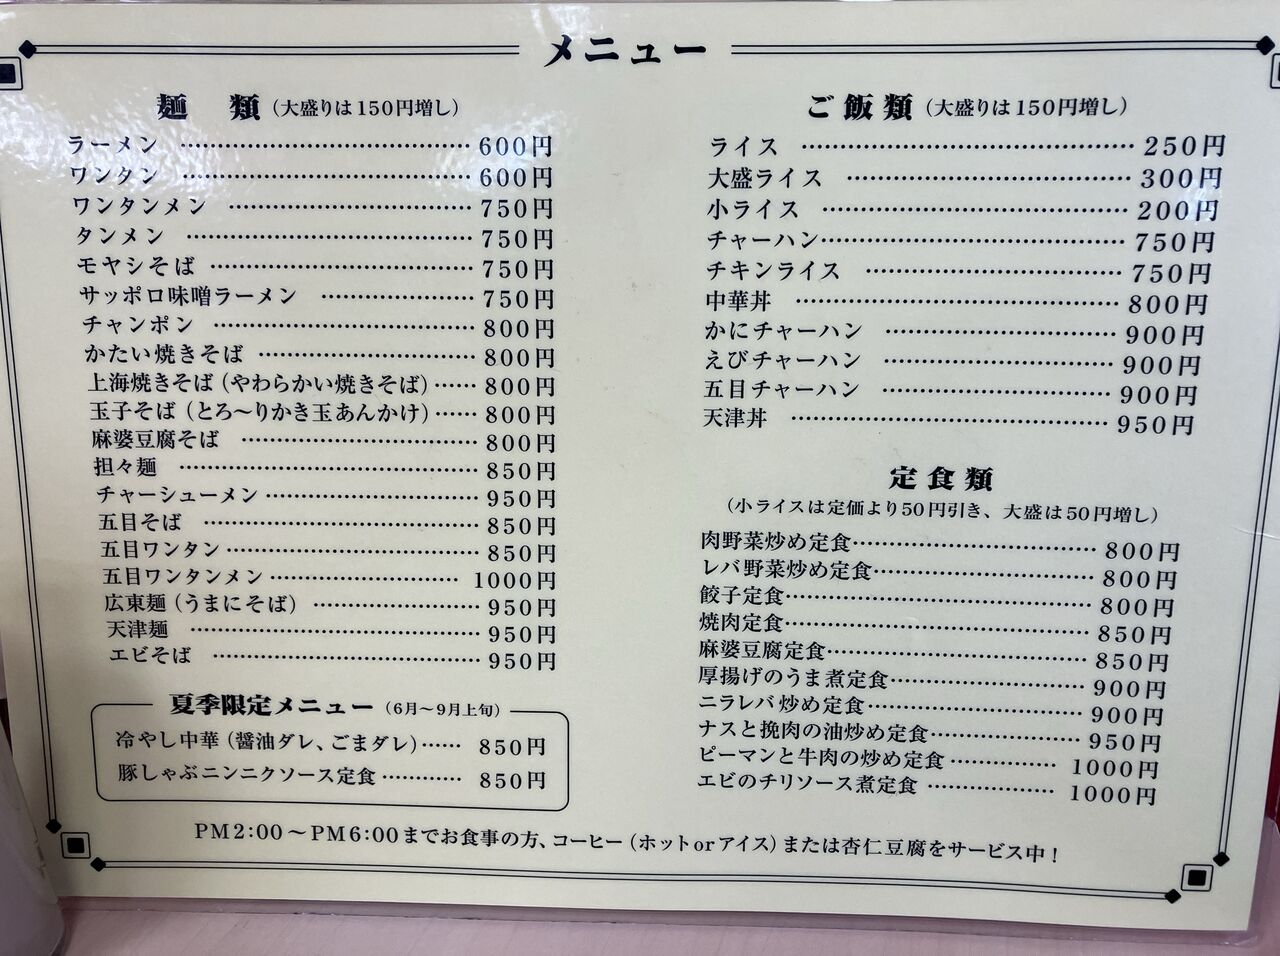 メニュー
麺 類 (大盛りは150円増し)
ラーメン ………… 600円
ワンタン ………… 600円
ワンタンメン ………… 750円
タンメン ………… 750円
モヤシそば ………… 750円
サッポロ味噌ラーメン ………… 750円
チャンポン ………… 800円
かたい焼きそば ………… 800円
上海焼きそば(やわらかい焼きそば)…… 800円
玉子そば(とろ～りかき玉あんかけ)…… 800円
麻婆豆腐そば ………… 800円
担々麺 ………… 850円
チャーシューメン ………… 950円
五目そば ………… 850円
五目ワンタン ………… 850円
五目ワンタンメン ………… 1000円
広東麺(うまにそば) ………… 950円
天津麺 ………… 950円
エビそば ………… 950円
夏季限定メニュー (6月～9月上旬)
冷やし中華(醤油ダレ、ごまダレ)…… 850円
豚しゃぶニンニクソース定食 ………… 850円
ご飯類 (大盛りは150円増し)
ライス ………… 250円
大盛ライス ………… 300円
小ライス ………… 200円
チャーハン ………… 750円
チキンライス ………… 750円
中華丼 ………… 800円
かにチャーハン ………… 900円
えびチャーハン ………… 900円
五目チャーハン ………… 900円
天津丼 ………… 950円
定食類
(小ライスは定価より50円引き、大盛は50円増し)
肉野菜炒め定食 ………… 800円
レバ野菜炒め定食 ………… 800円
餃子定食 ………… 800円
焼肉定食 ………… 850円
麻婆豆腐定食 ………… 850円
厚揚げのうま煮定食 ………… 900円
ニラレバ炒め定食 ………… 900円
ナスと挽肉の油炒め定食 ………… 950円
ピーマンと牛肉の炒め定食 ………… 1000円
エビのチリソース煮定食 ………… 1000円
PM2:00～PM6:00までお食事の方、コーヒー(ホットorアイス)または杏仁豆腐をサービス中!